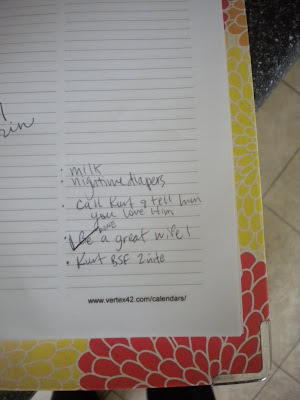 • milk
• nightime diapers
• call Kurt & tell him
you love him
• Be a great wife!
• Kurt BSF 2nite
www.vertex42.com/calendars/